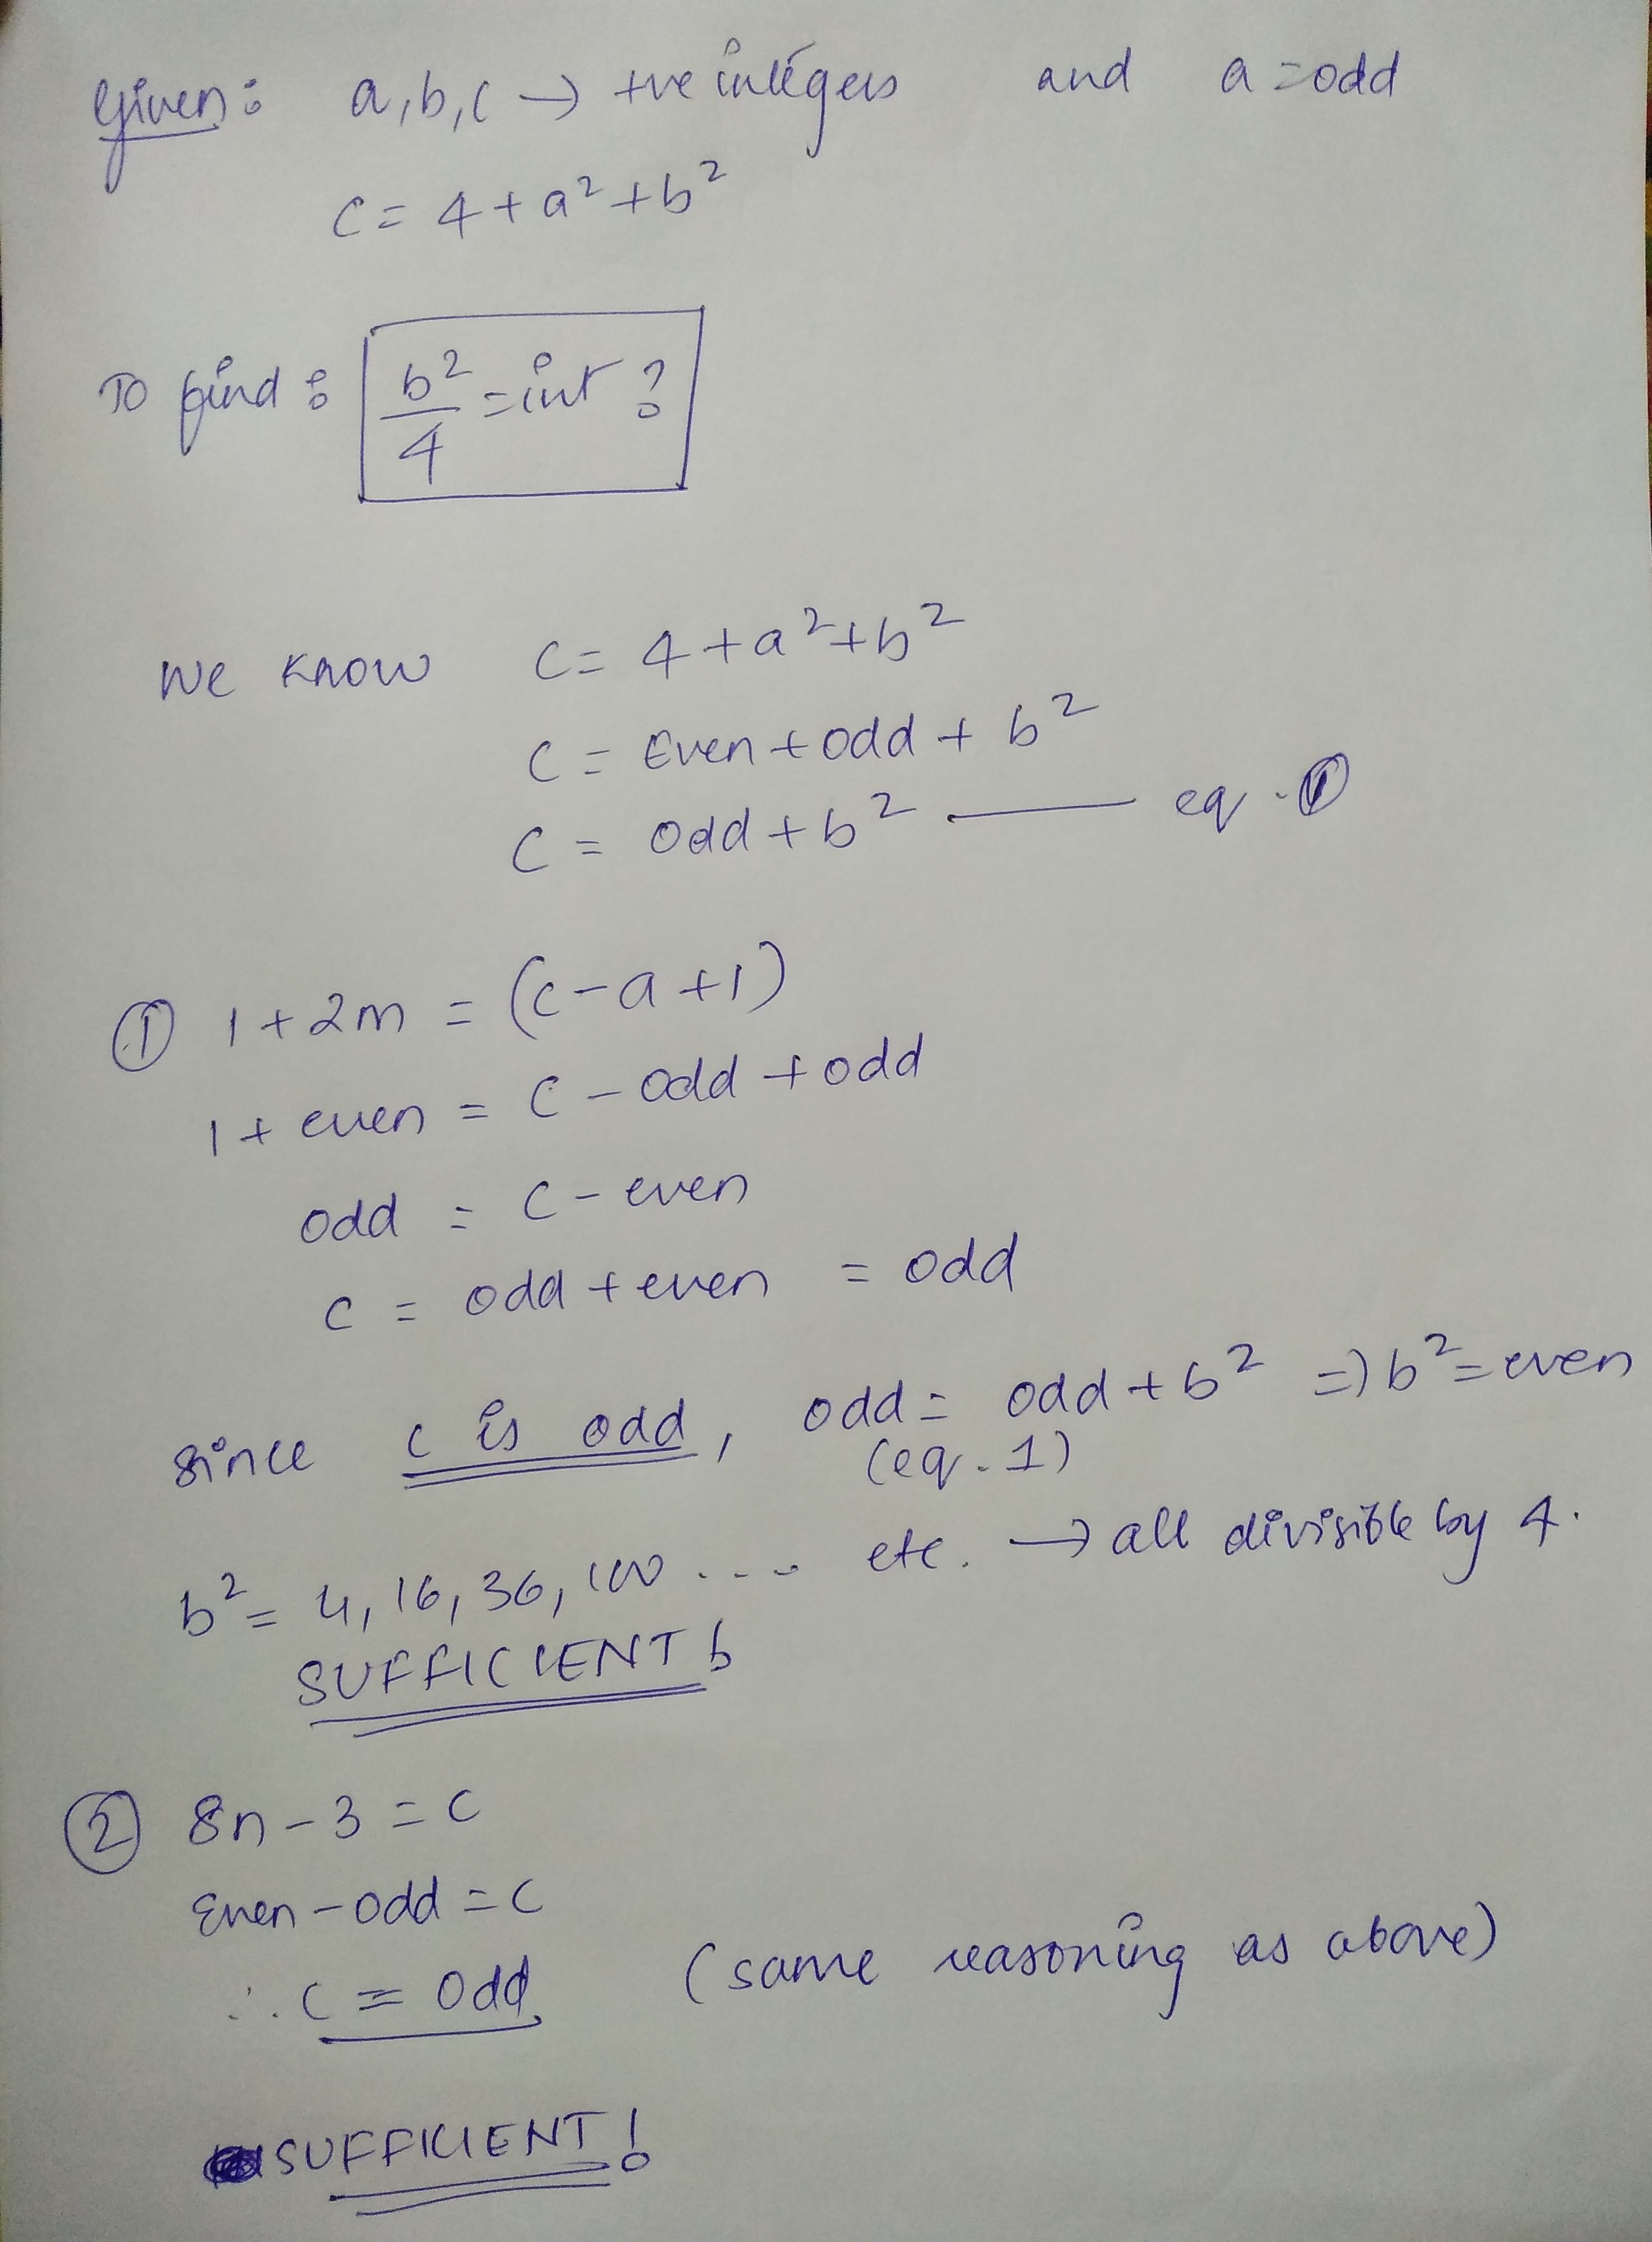 Given: a,b,c → +ve integers and a = odd
c = 4 + a² + b²
To find: b²/4 = int ?
We know c = 4 + a² + b²
c = Even + odd + b²
c = odd + b² —— eq. ①
① 1 + 2m = (c - a + 1)
1 + even = c - odd + odd
odd = c - even
c = odd + even = odd
since c is odd, odd = odd + b² => b² = even
(eq. 1)
b² = 4, 16, 36, 100 .... etc. → all divisible by 4.
SUFFICIENT
② 8n - 3 = c
Even - odd = c
∴ c = odd. (same reasoning as above)
SUFFICIENT!